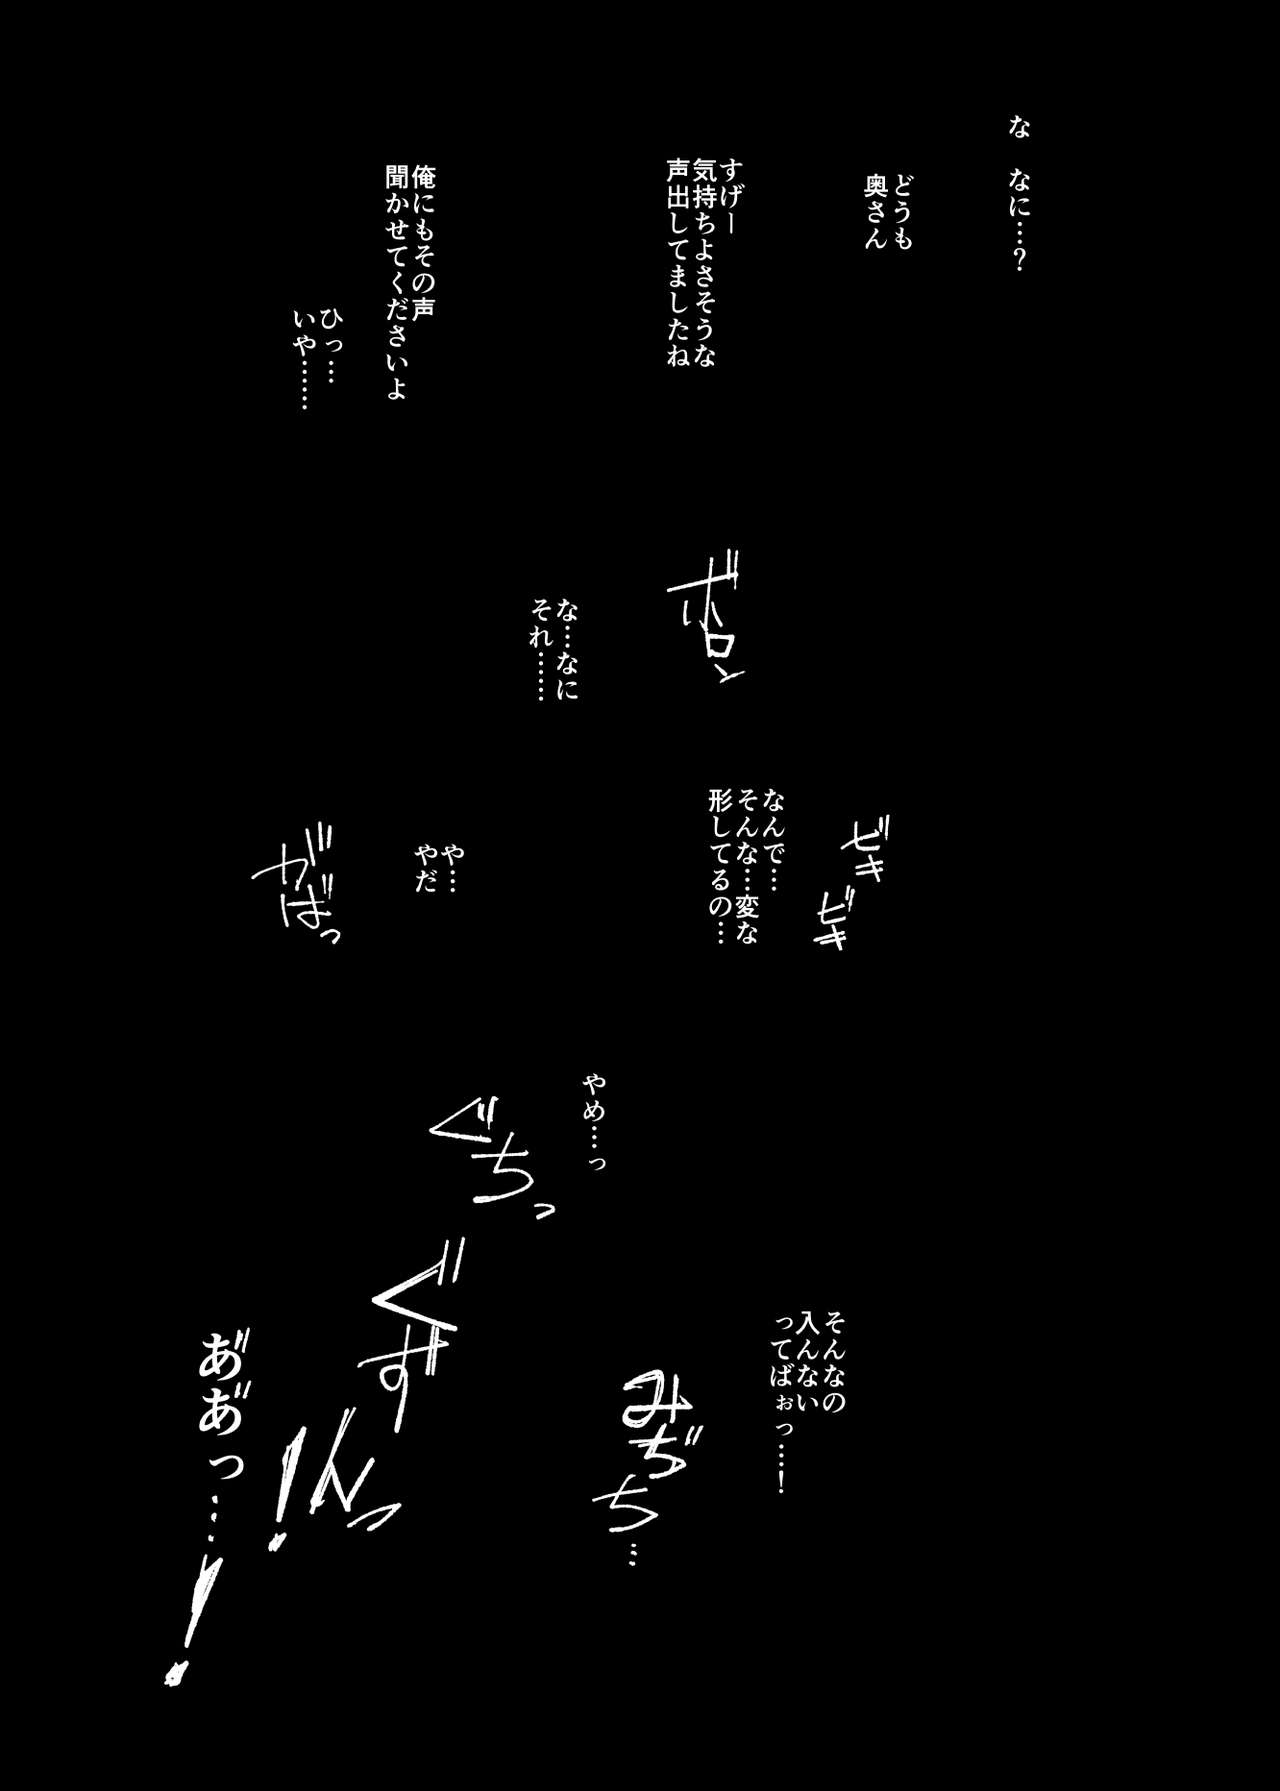 な なに…？
どうも
奥さん
すげー
気持ちよさそうな
声出してましたね
俺にもその声
聞かせてくださいよ
ひっ…
いや………
ボロン
な…なに
それ………
ビキ
ビキ
なんで…
そんな…変な
形してるの…
や…
やだ
がばっ
やめ…っ
ぐちっ
そんなの
入んない
ってばぉっ…！
みぢち…
ぐずんっ！
あ゛あ゛っ…！